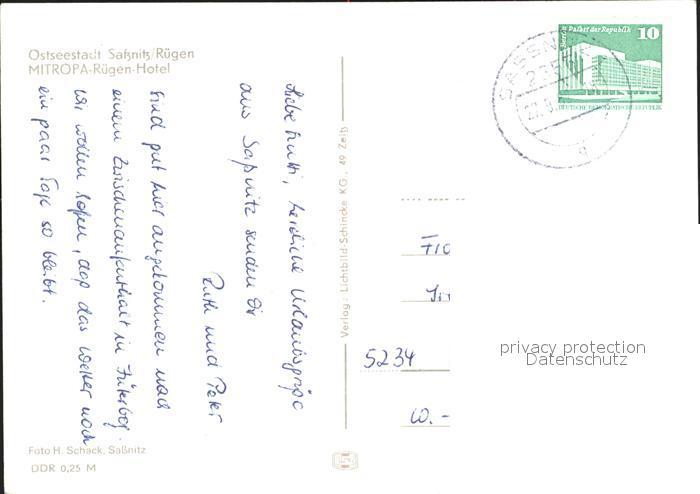 Ostseestadt Saßnitz/Rügen
MITROPA-Rügen-Hotel
Liebe Mutti, herzliche Urlaubsgrüße
aus Saßnitz senden Dir
Ruth und Peter
Sind gut hier angekommen nach
einem Zwischenaufenthalt in Jüterbog.
Wir wollen hoffen, daß das Wetter noch
ein paar Tage so bleibt.
Foto H. Schack, Saßnitz
DDR 0,25 M
Verlag: Lichtbild-Schincke KG, 49 Zeitz
Palast der Republik
10
DEUTSCHE DEMOKRATISCHE REPUBLIK
SASSNITZ
5234
privacy protection
Datenschutz